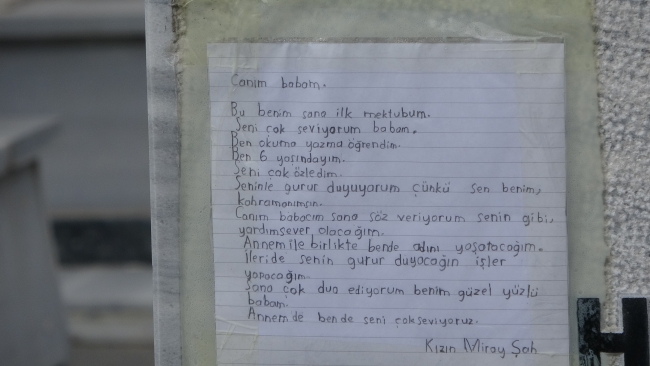 Canım babam.
Bu benim sana ilk mektubum.
Seni çok seviyorum babam.
Ben okuma yazma öğrendim.
Ben 6 yaşındayım.
Seni çok özledim.
Seninle gurur duyuyorum çünkü sen benim,
kahramanımsın.
Canım babacım sana söz veriyorum senin gibi,
yardımsever olacağım.
Annem ile birlikte bende adını yaşatacağım.
İleride senin gurur duyacağın işler
yapacağım.
Sana çok dua ediyorum benim güzel yüzlü
babam.
Annem de bende seni çok seviyoruz.
Kızın Miray Şah
H